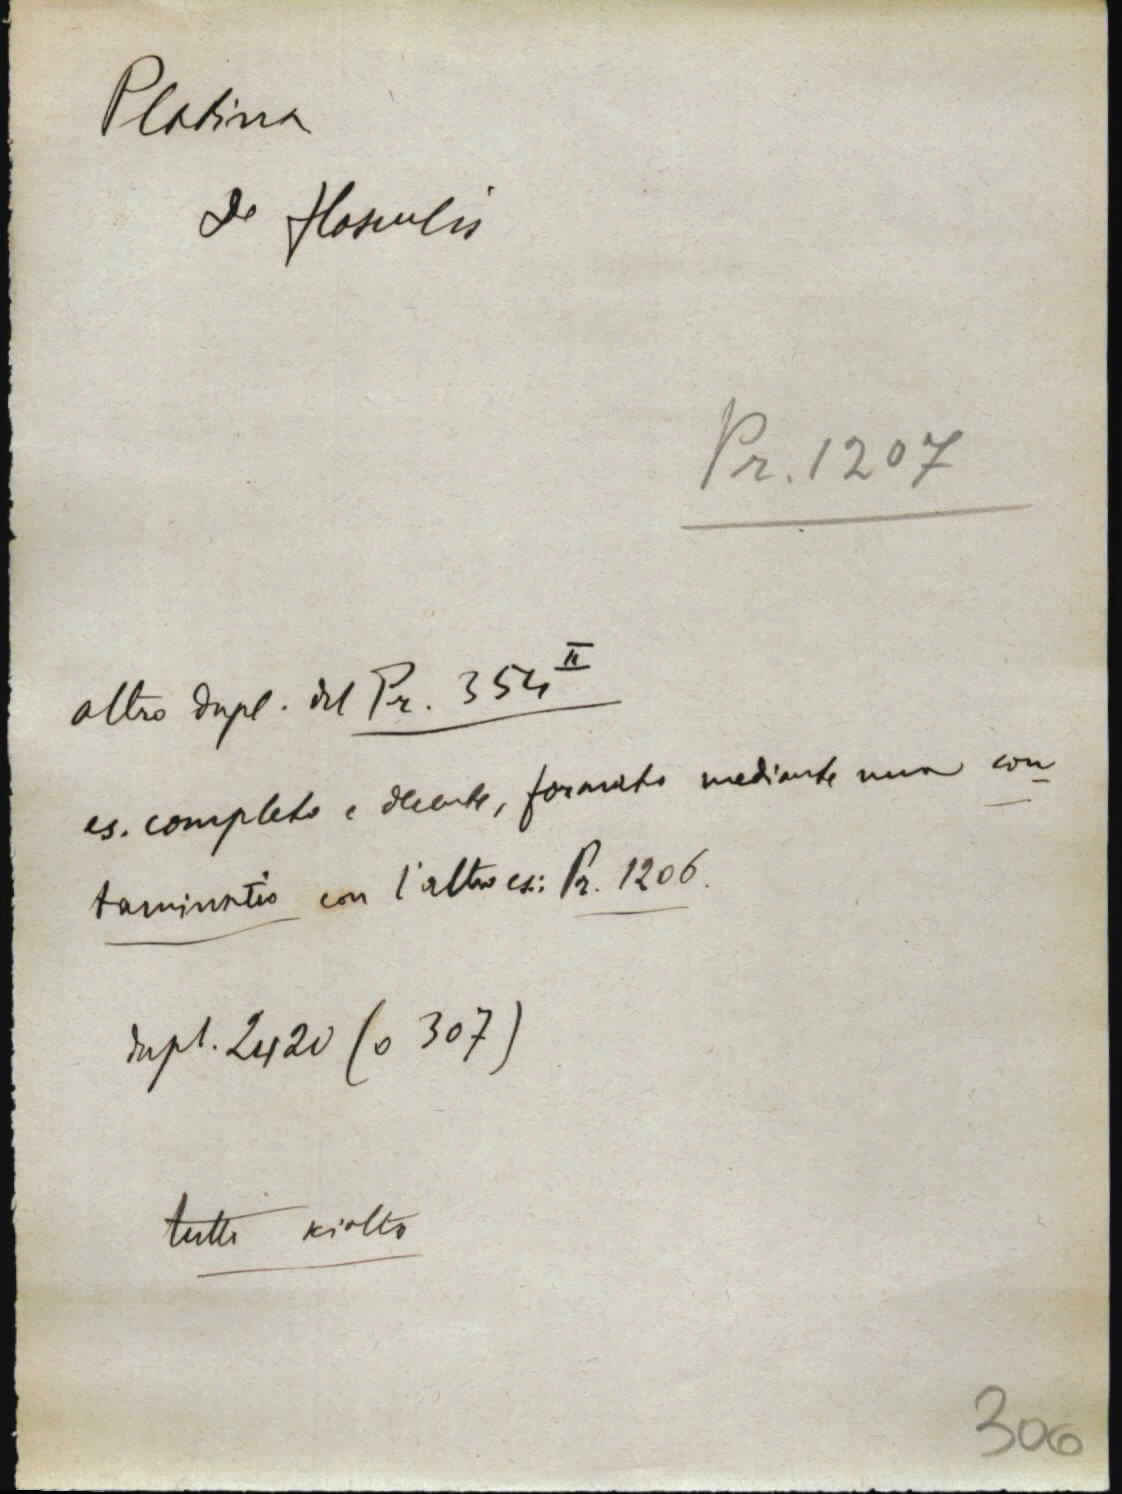 Platina
de flosculis
Pr. 1207
altro dupl. del Pr. 354 II
es. completo e decente, formato mediante una con
taminatio con l'altro es: Pr. 1206.
dupl. 2420 (o 307)
tutti
306